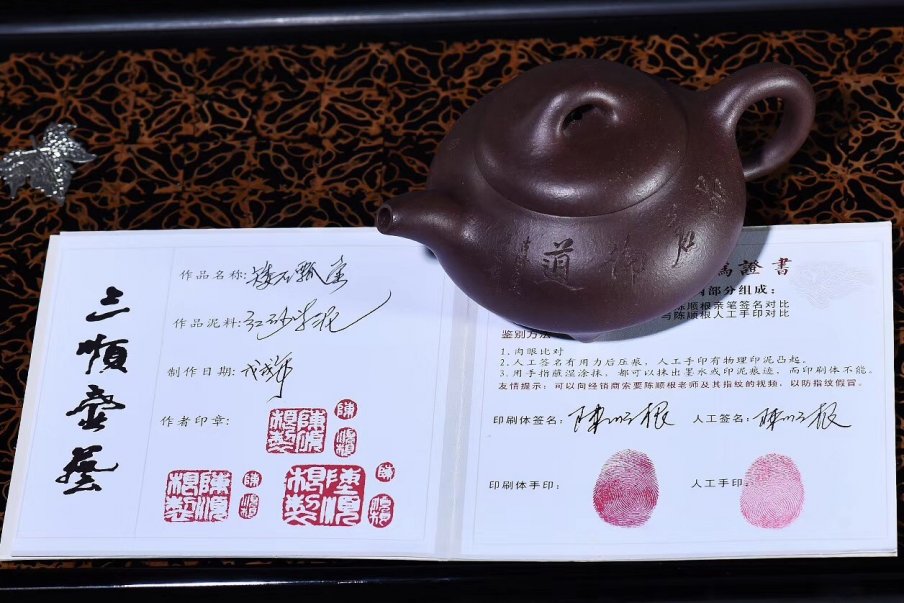 三順壺藝
作品名称:矮石瓢壶
作品泥料:红砂紫泥
制作日期:戊戌年
作者印章:
陳順根製
陳
順根
陳順根製
陳
順根
陳順根製
陳
順根
道
防偽證書
部分组成:
陈顺根亲笔签名对比
与陈顺根人工手印对比
鉴别方法
1.肉眼比对
2.人工签名有用力后压痕，人工手印有物理印泥凸起。
3.用手指蘸湿涂抹，都可以抹出墨水或印泥痕迹，而印刷体不能。
友情提示：可以向经销商索要陈顺根老师及其指纹的视频，以防指纹假冒。
印刷体签名:陳顺根 人工签名:陳顺根
印刷体手印: 人工手印: